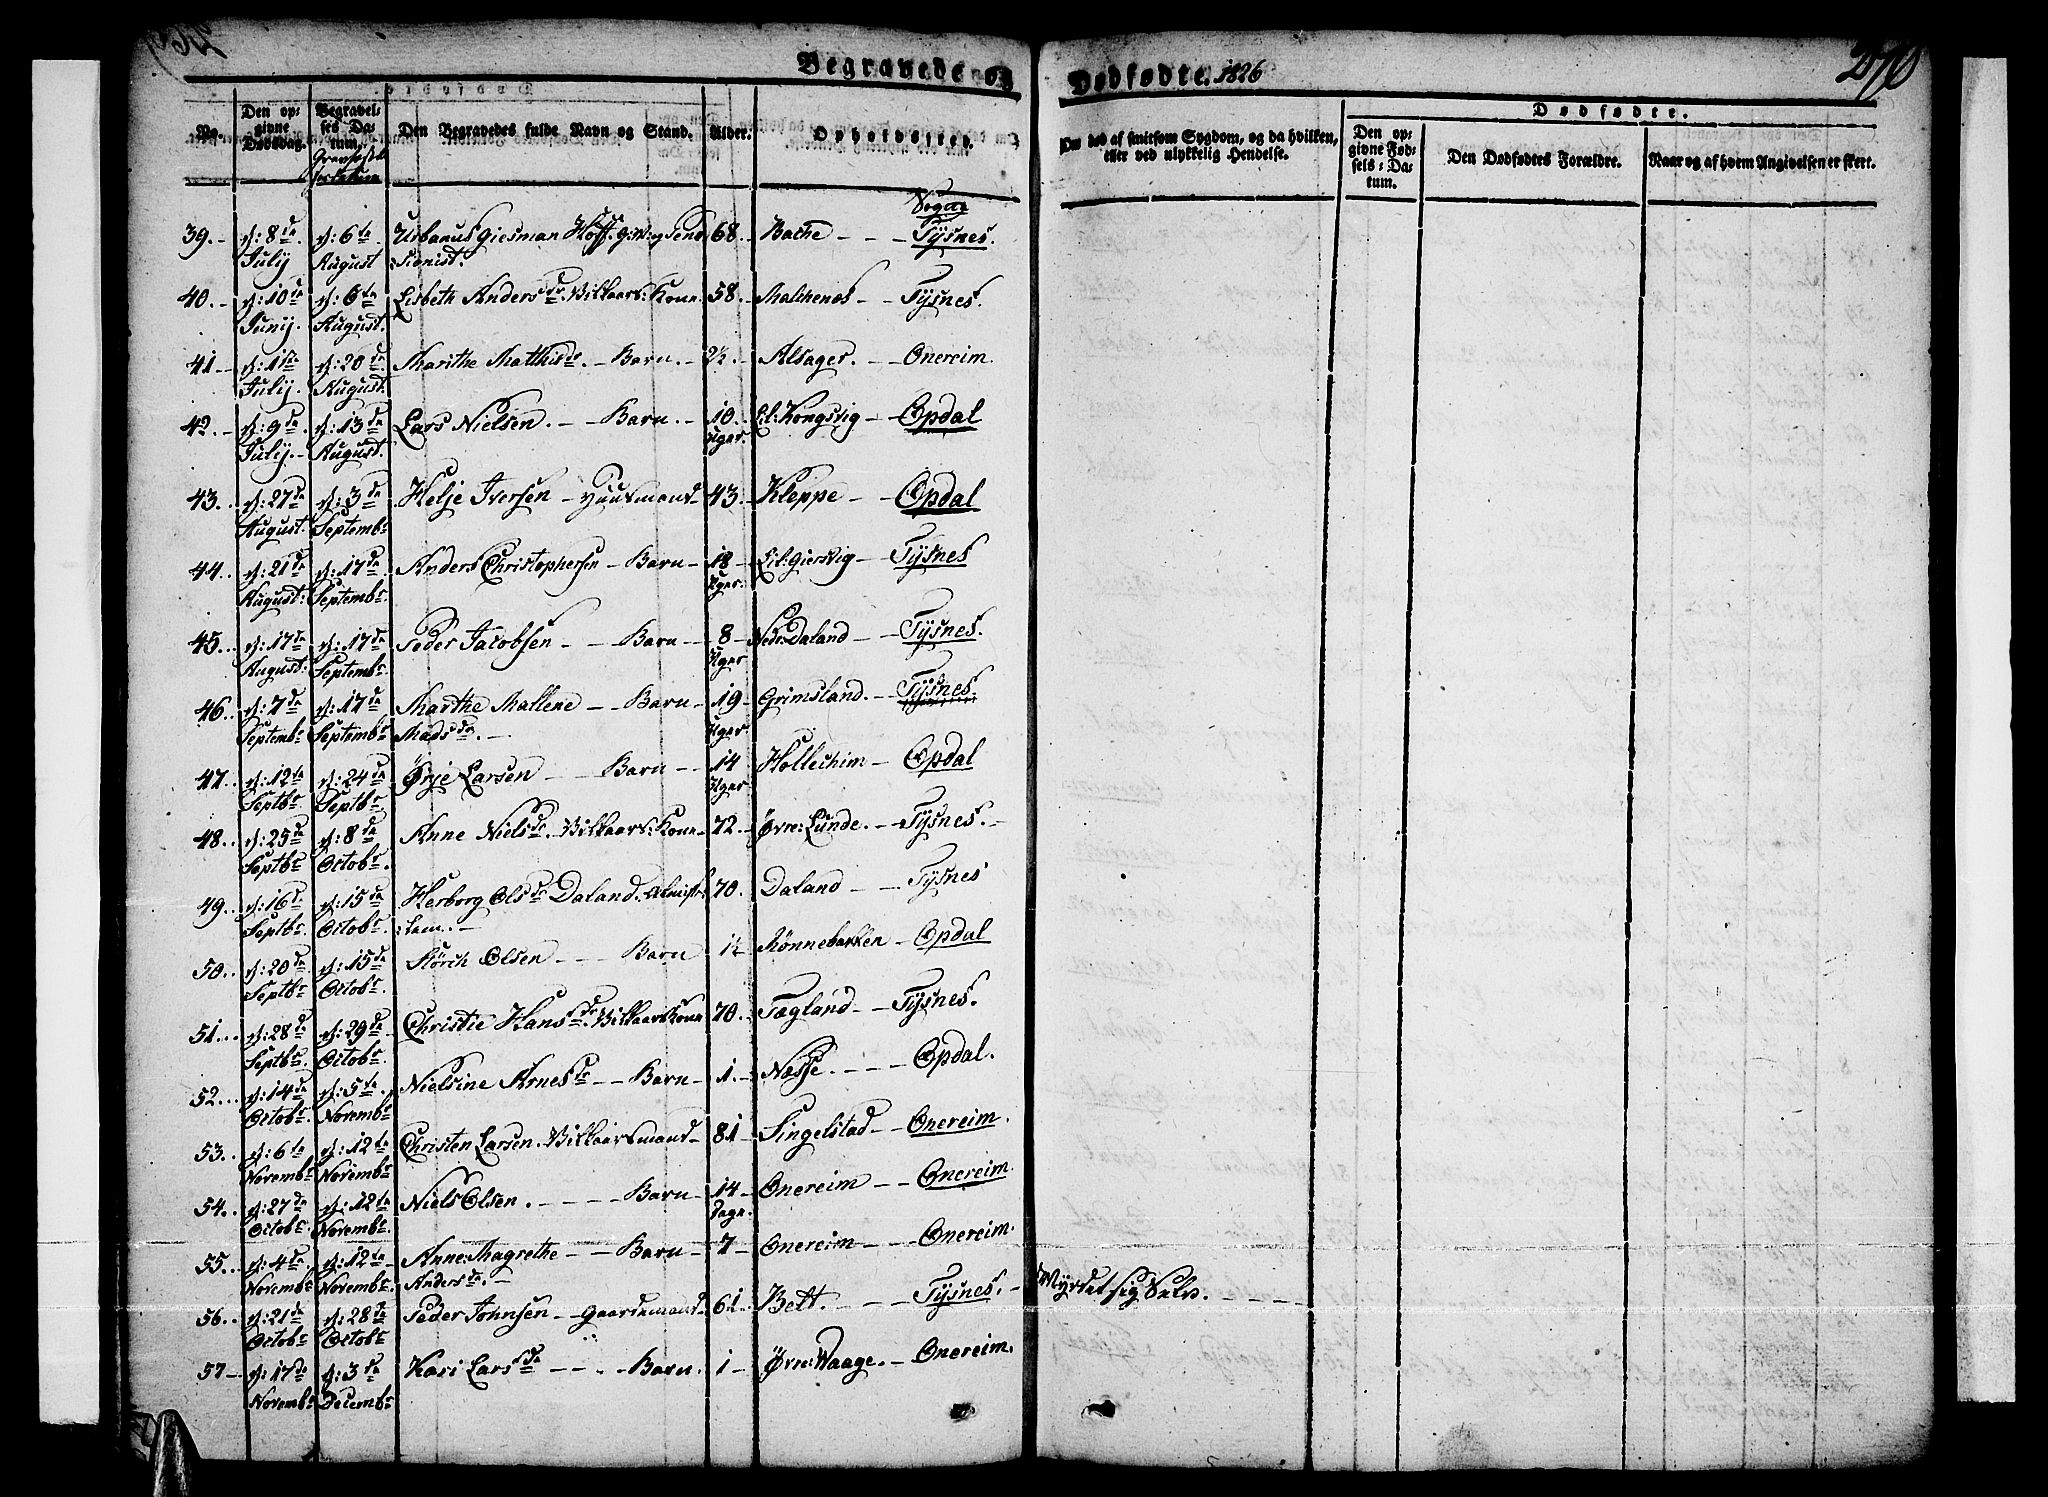 Begravede og Dødfødte. 1826
270
No.
Den op=
givne
Dødsdag.
Begravel=
ses Da=
tum.
Den Begravedes fulde Navn og Stand.
Alder.
Opholdssted.
Om død af smitsom Sygdom, og da hvilken,
eller ved ulykkelig Hendelse.
Dødfødte.
Den op=
givne Fød=
sels=Da=
tum.
Den Dødfødtes Forældre.
Naar og af hvem Angivelsen er skeet.
Sogne
39. d: 8de July d: 6te August Urbanus Giesman Hoff. 68. Bache Tysnes.
:sionist.
40. d: 10de Juny. d: 6te August. Lisbeth Andersdr. Vilkaars: Kone 58. Malchenes Tysnes.
41 July. d: 20de August. Marithe Matthisdr. Barn. 2½. Alsager. Onereim.
42. d: 9de July. d: 13de August. Lars Nielsen. Barn. 10. Uger. Lil: Kongsvig Opdal
43. d: 27de August. d: 3de Septembr Helje Iversen Huusmand 43. Kleppe Opdal
44. d: 21de August: d: 17de Septembr. Anders Christophersen Barn 18 Uger. Lil: Giersvig Tysnes
45. d: 17de August: d: 17de Septembr Peder Jacobsen Barn 8 Uger Nedr: Daland Tysnes.
46. d: 7de Septembr d: 17de Septembr Marthe Mallene Barn 19 Uger. Grimsland. Tysnes.
Madsdr.
47. d: 12te Septbr d: 24de Septbr Ørje Larsen Barn 14 Uger Hollechim Opdal
48. d: 25de Septbr d: 8de Octobr. Anne Nielsdr. Vilkaars: Kone 72. Øvre: Lunde. Tysnes.
49. d: 16de Septbr. d: 15de Octobr. Herborg Olsdr Daland. Almisse 70. Daland Tysnes
:Lem.
50. d: 20de Septbr d: 15de Octobr. Størch Olsen Barn Rønnebakken Opdal
51. d: 28de Septbr d: 29de Octobr Christie Hansdr. Vilkaars Kone 70. Tægland Tysnes.
52. d: 14de Octobr. d: 5te Novembr Nielsine Arnesdr Barn 1. Næsse. Opdal.
53. d: 6te Novembr d: 12te Novembr Christen Larsen. Vilkaarsmand 81 Singelstad Onereim.
54. d: 27de Octobr d: 12te Novembr. Niels Olsen. Barn 14 Dage. Onereim Onereim
55. d: 4de Novembr d: 12te Novembr. Anne Magrethe Barn 7 Onereim Onereim.
Andersdr.
56. d: 21de Octobr d: 28de Octobr Peder Johnsen Gaardmand 61 Bett. Tysnes. Myrdet sig Selv.
57 d: 17de Novembr d: 3de Decembr Kari Larsdr Barn. 1 Øvre: Waage. Onereim.